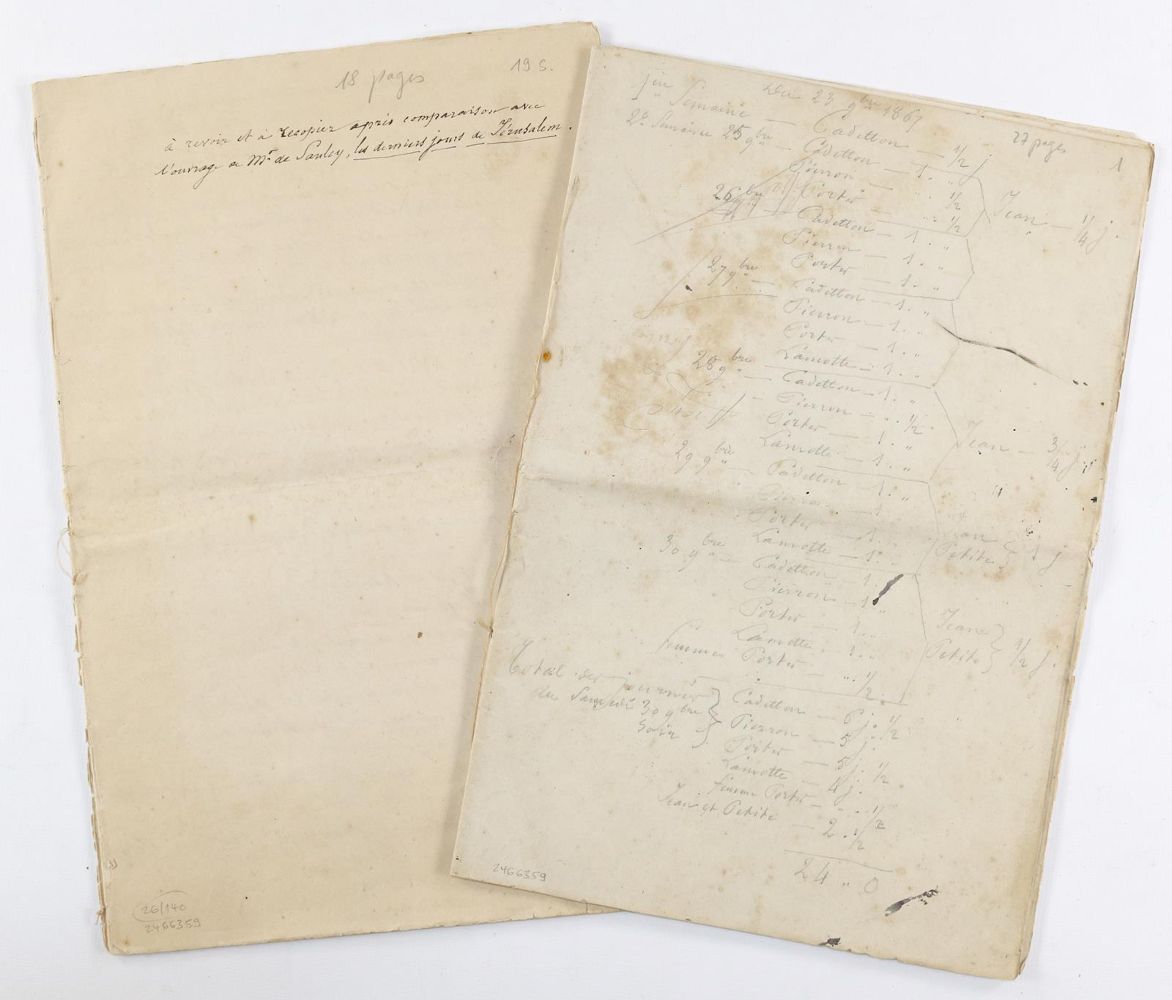 18 pages
19 s.
à revoir et à recopier après comparaison avec
l'ouvrage de Mr. de Saulcy, les derniers jours de Jérusalem.
26/140
2466359
27 pages
1
23 9bre 1867
1ère Semaine — Cadetton — 1/2 j
2e Semaine 25 9bre — Cadetton — 1 . "
Pierron — " 1/2
Porter — " 1/2
Jean — 1/4 j.
26 9bre — Cadetton — 1 . "
Pierron — 1 . "
Porter — 1 . "
27 9bre — Cadetton — 1 . "
Pierron — 1 . "
Porter — 1 . "
Lamotte — 1 . "
28 9bre — Cadetton — 1 . "
Pierron — " 1/2
Porter — 1 . "
Lamotte — 1 . "
Jean — 3/4 j.
29 9bre — Cadetton — 1 . "
Pierron
Porter — 1 . "
Lamotte — 1 . "
Jean
Petite } 1 j
30 9bre — Cadetton — 1 . "
Pierron — 1 . "
Porter — 1 . "
Lamotte — 1 . "
femme Porter — " 1/2
Jean
Petite } 1/2 j.
Total des journées
du Samedi 30 9bre
Soir
Cadetton — 6 j. 1/2
Pierron — 5 j.
Porter — 5 j. 1/2
Lamotte — 4 j.
femme Porter — " 1/2
Jean et Petite — 2 . 1/2
24 " 0
2466359